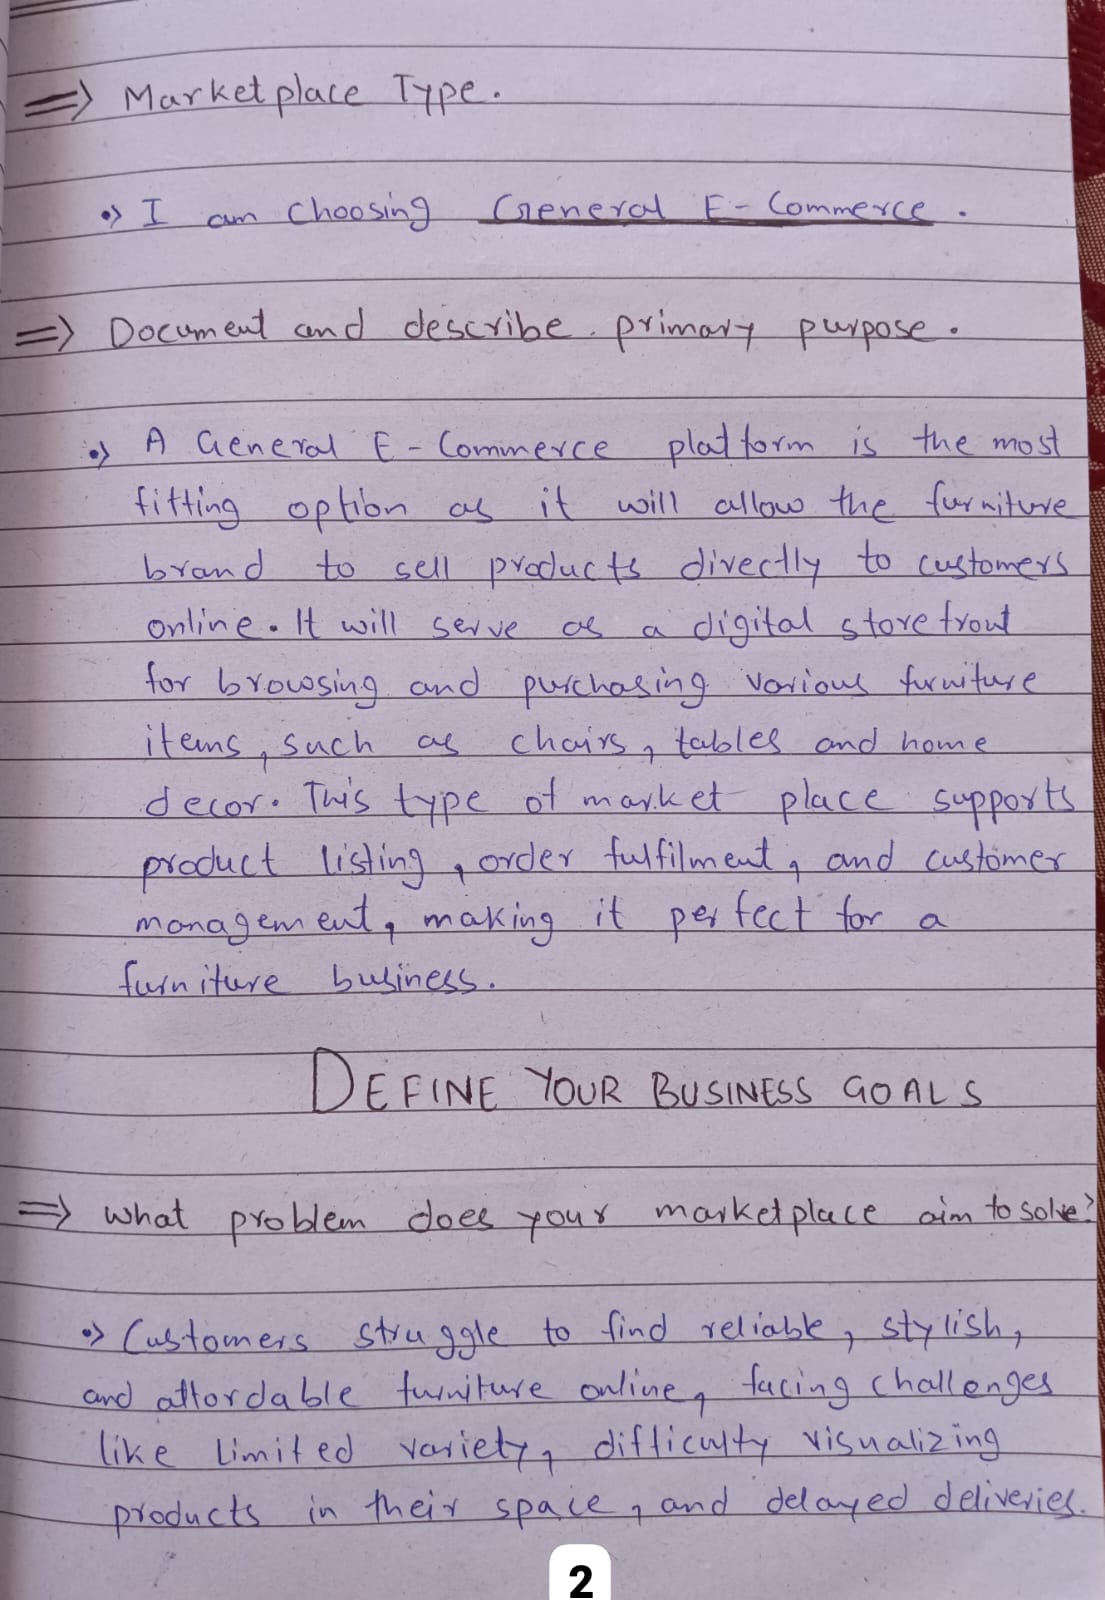 => Marketplace Type.
•> I am choosing General E-Commerce.
=> Document and describe primary purpose.
•> A General E-Commerce platform is the most
fitting option as it will allow the furniture
brand to sell products directly to customers
online. It will serve as a digital storefront
for browsing and purchasing various furniture
items, such as chairs, tables and home
decor. This type of market place supports
product listing, order fulfilment, and customer
management, making it perfect for a
furniture business.
DEFINE YOUR BUSINESS GOALS
=> What problem does your marketplace aim to solve?
•> Customers struggle to find reliable, stylish,
and affordable furniture online, facing challenges
like limited variety, difficulty visualizing
products in their space, and delayed deliveries.
2